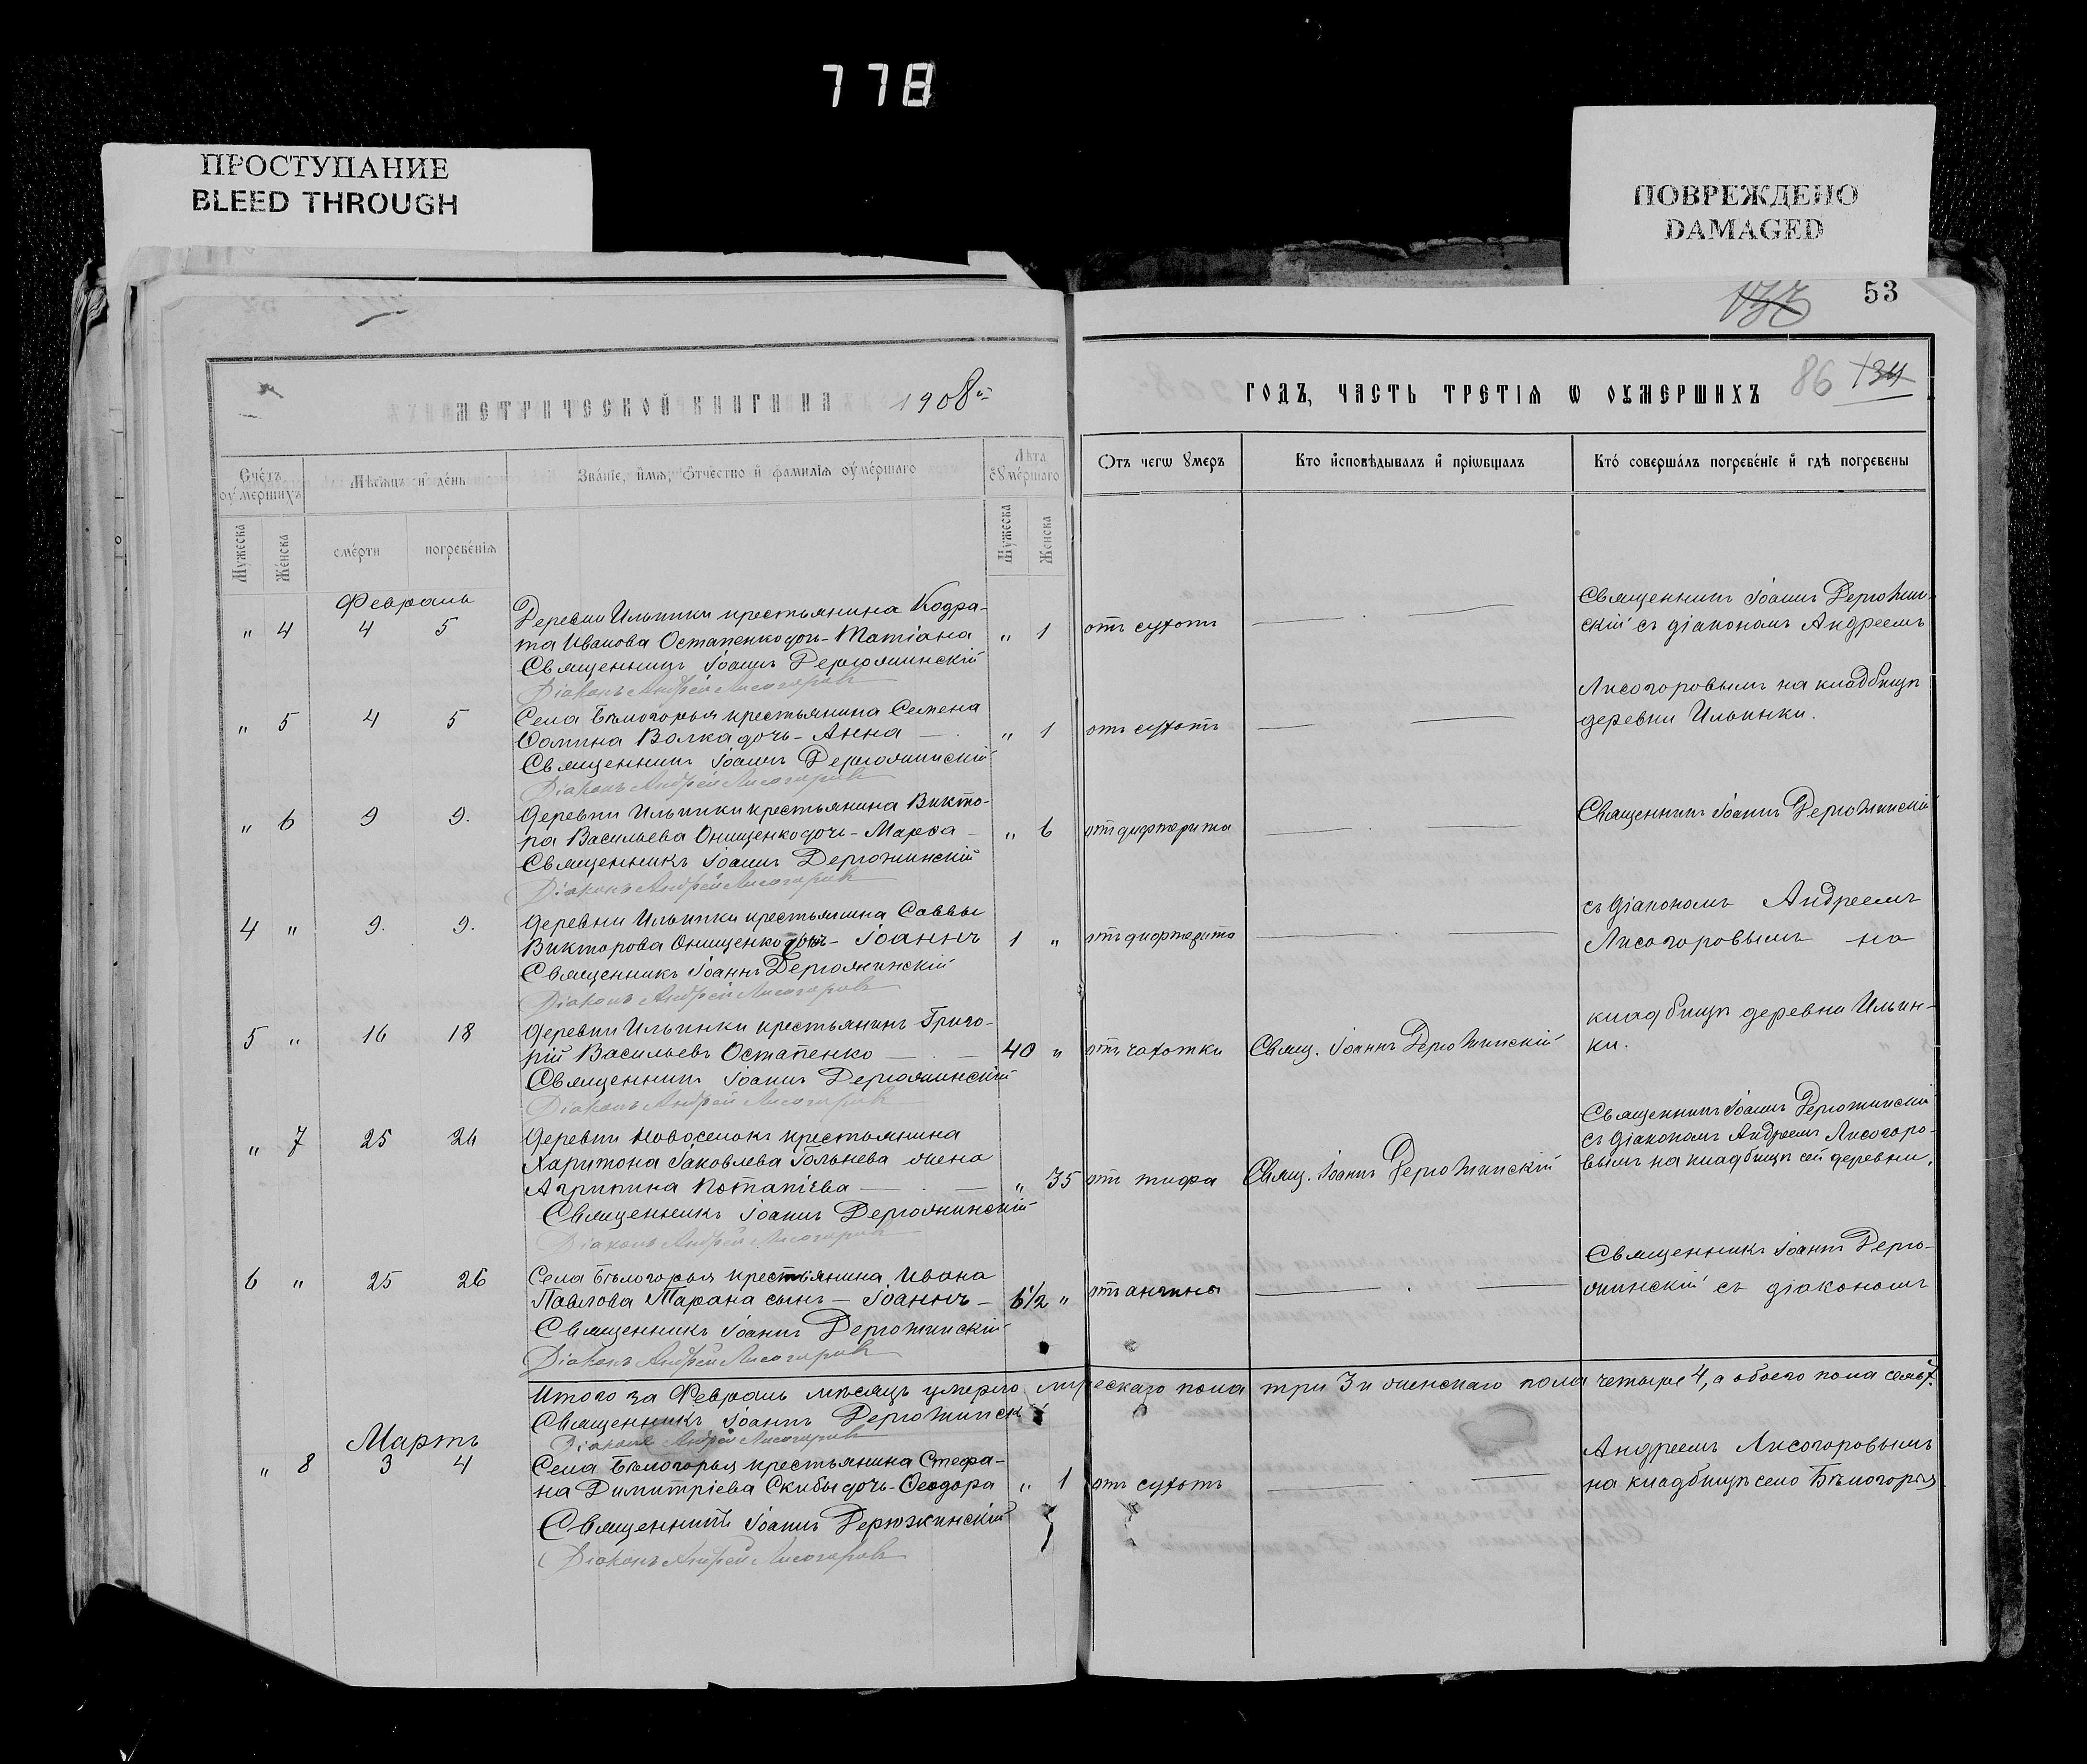 778
ПРОСТУПАНИЕ
BLEED THROUGH
ПОВРЕЖДЕНО
DAMAGED
53
86 134
МЕТРИЧЕСКОЙ КНИГИ НА 1908й
ГОДЪ, ЧАСТЬ ТРЕТІѦ Ѡ ОУМЕРШИХЪ
Счетъ оумершихъ
Мѣсѧцъ и день
Званіе, имѧ, отчество и фамиліѧ оумершаго
Лѣта оумершаго
Отъ чегѡ умеръ
Кто исповѣдывалъ и пріѡбщалъ
Кто совершалъ погребеніе и гдѣ погребены
Мужеска
Женска
смерти
погребеніѧ
Мужеска
Женска
Февраль
" 4 4 5
Деревни Ильинки крестьянина Кодра-
та Иванова Остапенко дочь - Татіана
" 1
отъ сухотъ
Священникъ Іоаннъ Дерюжинскій
Діаконъ Андрей Лисогоровъ
Священникъ Іоаннъ Дерюжин-
скій съ діакономъ Андреемъ
Лисогоровымъ на кладбищѣ
деревни Ильинки.
" 5 4 5
Села Бѣлогорья крестьянина Семена
Ѳомина Волка дочь - Анна
" 1
отъ сухотъ
Священникъ Іоаннъ Дерюжинскій
Діаконъ Андрей Лисогоровъ
" 6 9 9.
Деревни Ильинки крестьянина Викто-
ра Васильева Онищенко дочь - Марѳа
" 6
отъ дифтерита
Священникъ Іоаннъ Дерюжинскій
Діаконъ Андрей Лисогоровъ
Священникъ Іоаннъ Дерюжинскій
съ діакономъ Андреемъ
Лисогоровымъ на
кладбищѣ деревни Ильин-
ки.
4 " 9. 9.
Деревни Ильинки крестьянина Саввы
Викторова Онищенко сынъ - Іоаннъ
1 "
отъ дифтерита
Священникъ Іоаннъ Дерюжинскій
Діаконъ Андрей Лисогоровъ
5 " 16 18
Деревни Ильинки крестьянинъ Григо-
рій Васильевъ Остапенко
40 "
отъ чахотки
Свящ. Іоаннъ Дерюжинскій
Священникъ Іоаннъ Дерюжинскій
Діаконъ Андрей Лисогоровъ
" 7 25 26
Деревни Новоселокъ крестьянина
Харитона Іаковлева Гольнева жена
Агрипина Потапіева
" 35
отъ тифа
Свящ. Іоаннъ Дерюжинскій
Священникъ Іоаннъ Дерюжинскій
съ діакономъ Андреемъ Лисогоро-
вымъ на кладбищѣ сей деревни.
Священникъ Іоаннъ Дерюжинскій
Діаконъ Андрей Лисогоровъ
6 " 25 26
Села Бѣлогорья крестьянина Ивана
Павлова Тарана сынъ - Іоаннъ
6½ "
отъ ангины
Священникъ Іоаннъ Дерюжинскій
Діаконъ Андрей Лисогоровъ
Священникъ Іоаннъ Дерю-
жинскій съ діакономъ
Андреемъ Лисогоровымъ
на кладбищѣ села Бѣлогорья
Итого за Февраль мѣсяцъ умерло мужескаго пола три 3 и женскаго пола четыре 4, а обоего пола семь 7.
Священникъ Іоаннъ Дерюжинскій
Діаконъ Андрей Лисогоровъ
Мартъ
" 8 3 4
Села Бѣлогорья крестьянина Стефа-
на Димитріева Скибы дочь - Ѳеодора
" 1
отъ сухотъ
Священникъ Іоаннъ Дерюжинскій
Діаконъ Андрей Лисогоровъ